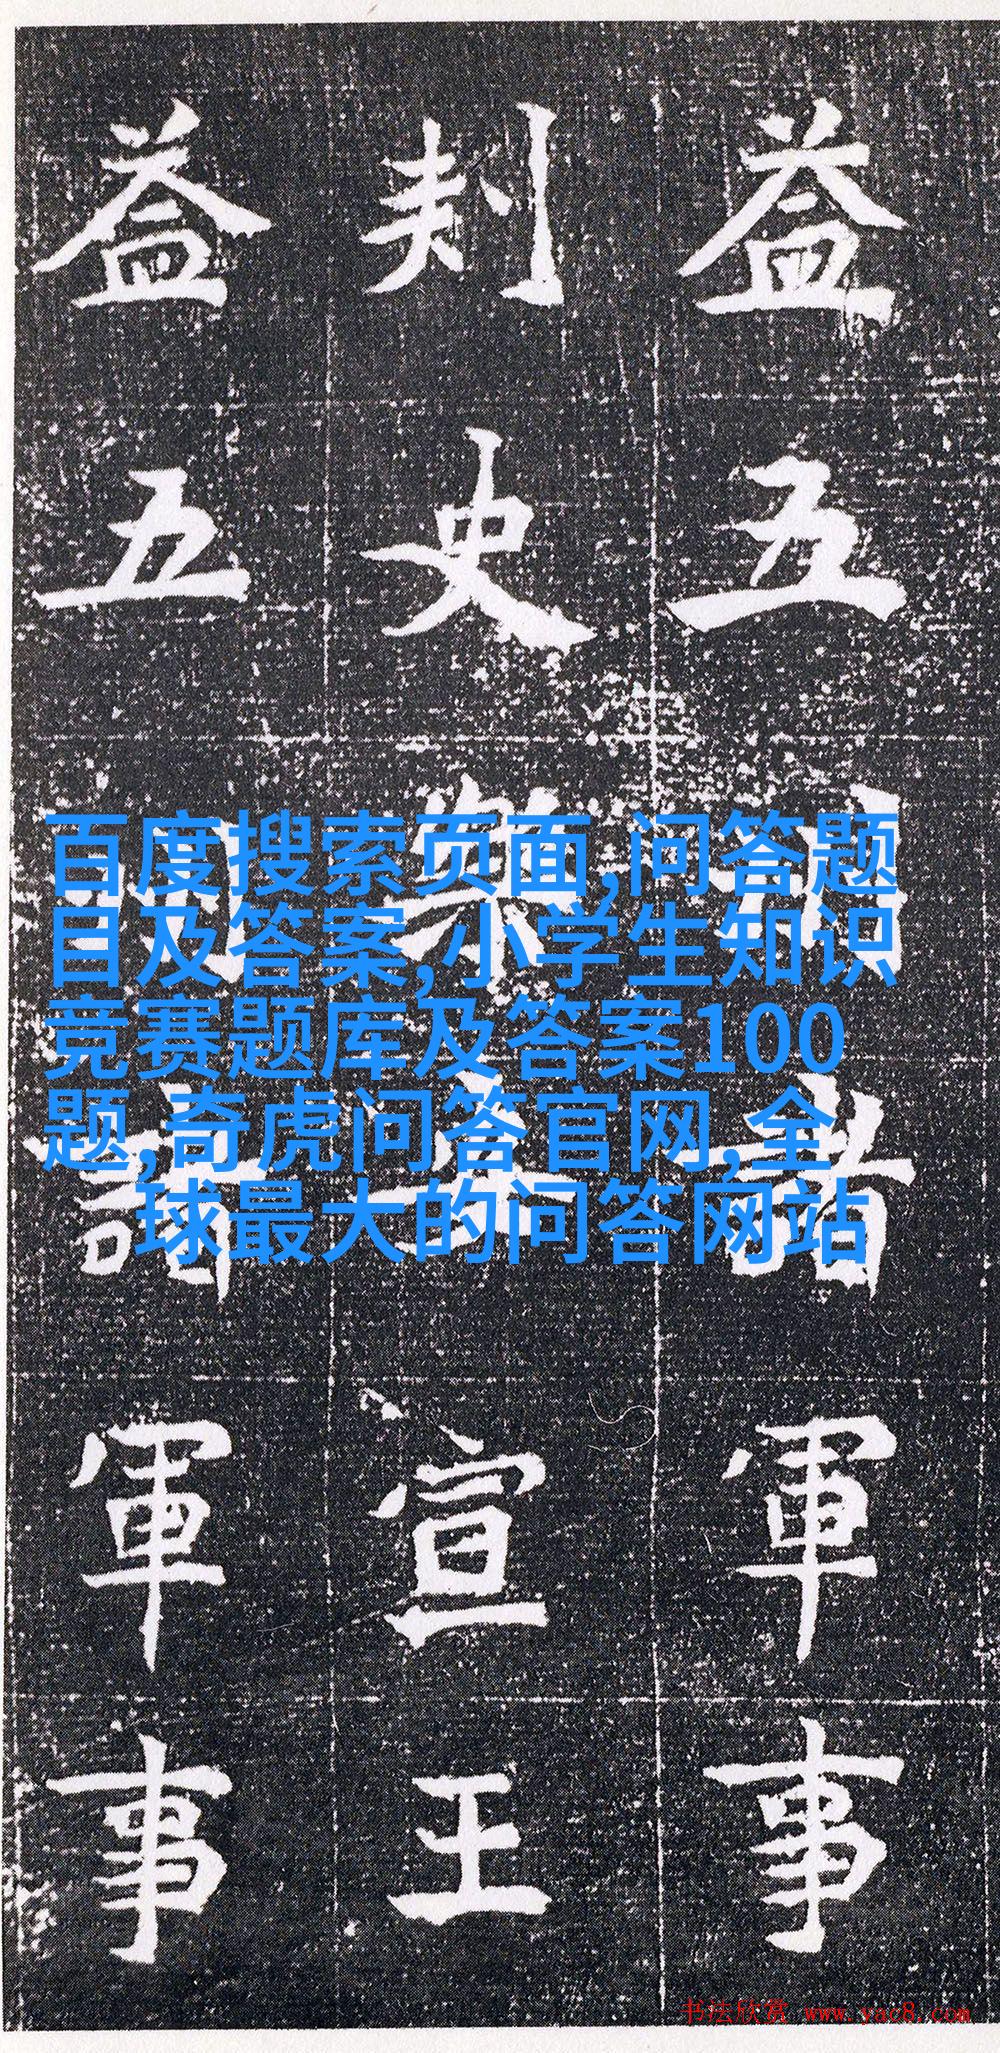 益五州諸軍事
刺史樂安宣王
益五州諸軍事
百度搜索页面,问答题
目及答案,小学生知识
竞赛题库及答案100
题,奇虎问答官网,全
球最大的问答网站
书法欣赏 www.yac8.com